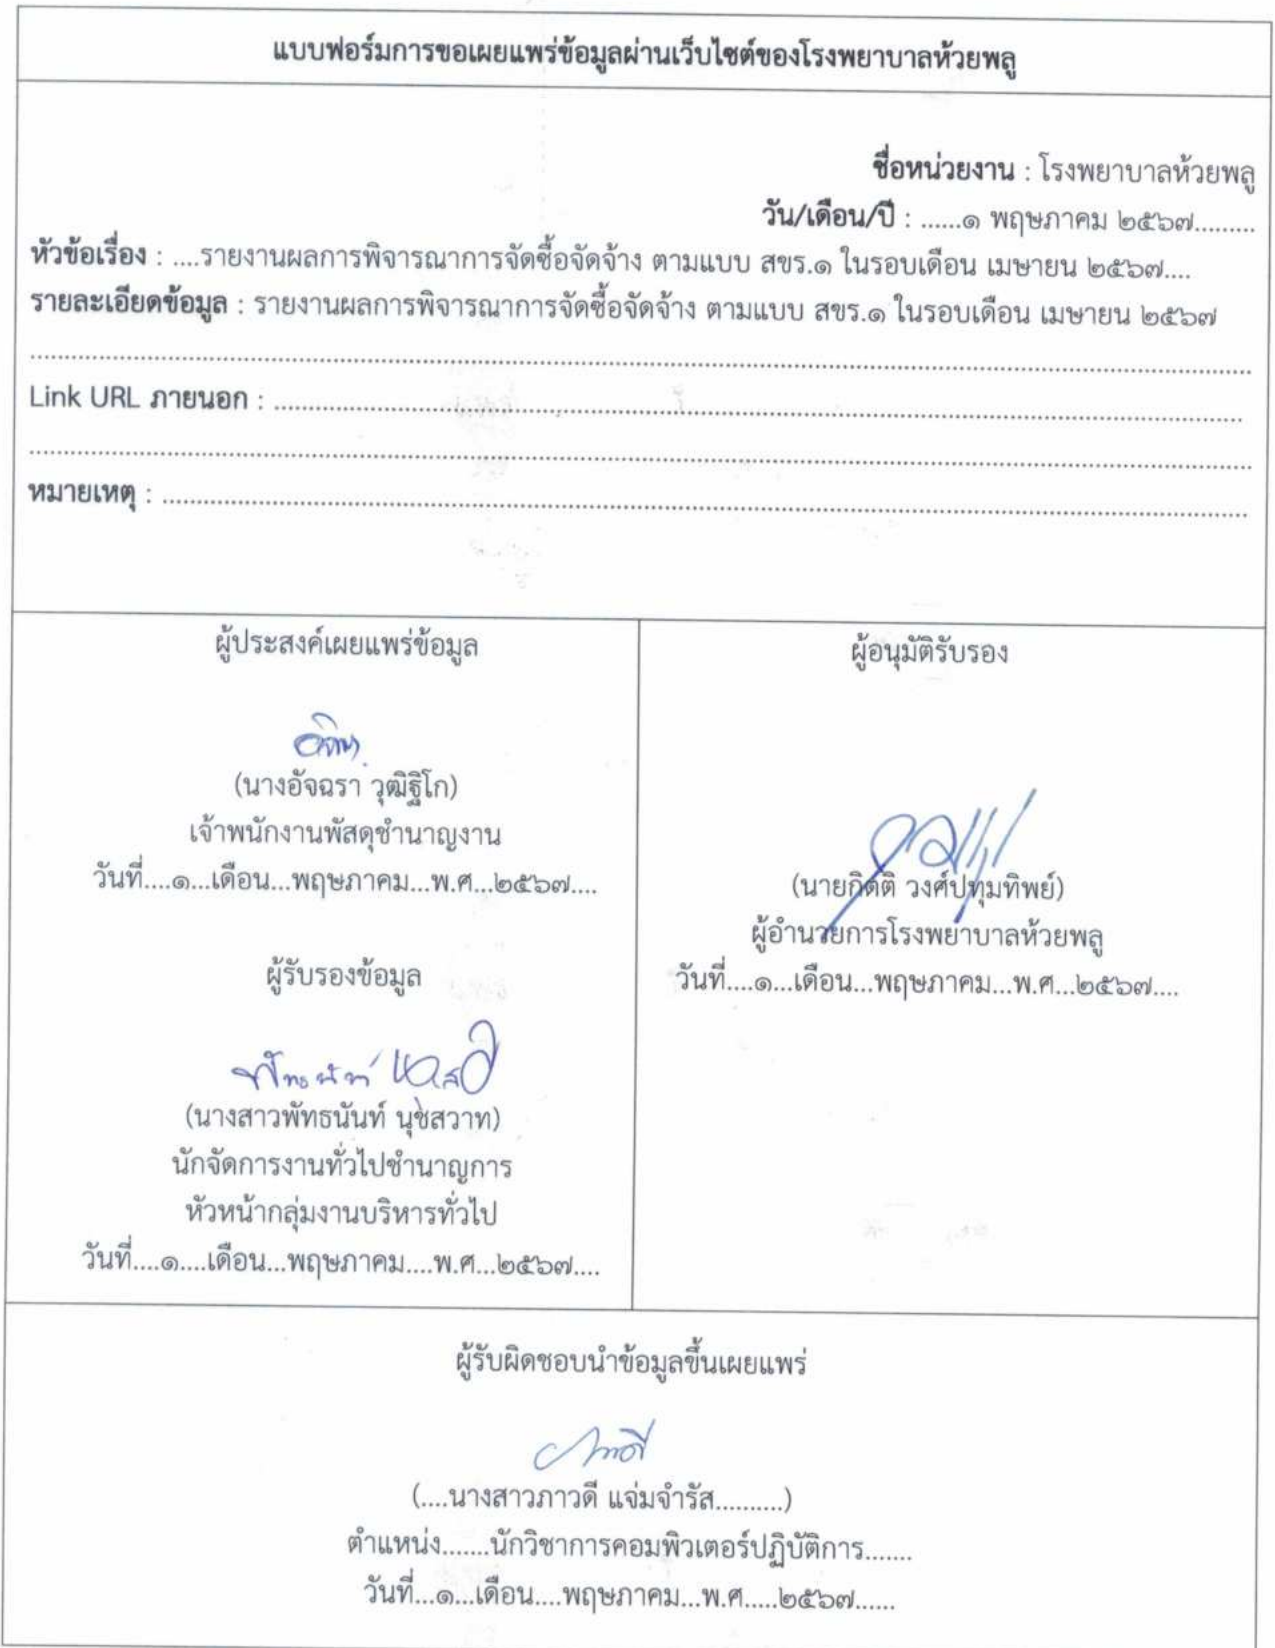 แบบฟอร์มการขอเผยแพร่ข้อมูลผ่านเว็บไซต์ของโรงพยาบาลห้วยพลู
ชื่อหน่วยงาน : โรงพยาบาลห้วยพลู
วัน/เดือน/ปี : ......๑ พฤษภาคม ๒๕๖๗.........
หัวข้อเรื่อง : ....รายงานผลการพิจารณาการจัดซื้อจัดจ้าง ตามแบบ สขร.๑ ในรอบเดือน เมษายน ๒๕๖๗....
รายละเอียดข้อมูล : รายงานผลการพิจารณาการจัดซื้อจัดจ้าง ตามแบบ สขร.๑ ในรอบเดือน เมษายน ๒๕๖๗
Link URL ภายนอก : ..........
หมายเหตุ : ..........
ผู้ประสงค์เผยแพร่ข้อมูล
(นางอัจฉรา วุฒิฐิโก)
เจ้าพนักงานพัสดุชำนาญงาน
วันที่....๑...เดือน...พฤษภาคม...พ.ศ...๒๕๖๗....
ผู้รับรองข้อมูล
(นางสาวพัทธนันท์ นุชสวาท)
นักจัดการงานทั่วไปชำนาญการ
หัวหน้ากลุ่มงานบริหารทั่วไป
วันที่....๑....เดือน...พฤษภาคม....พ.ศ...๒๕๖๗....
ผู้อนุมัติรับรอง
(นายกิตติ วงศ์ปทุมทิพย์)
ผู้อำนวยการโรงพยาบาลห้วยพลู
วันที่....๑...เดือน...พฤษภาคม...พ.ศ...๒๕๖๗....
ผู้รับผิดชอบนำข้อมูลขึ้นเผยแพร่
ภาวดี
(....นางสาวภาวดี แจ่มจำรัส..........)
ตำแหน่ง.......นักวิชาการคอมพิวเตอร์ปฏิบัติการ.......
วันที่...๑...เดือน....พฤษภาคม...พ.ศ.....๒๕๖๗......